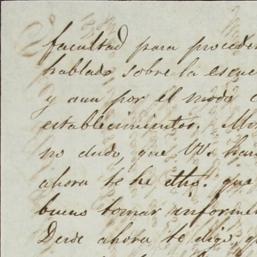 facultad para proceder
hablado sobre la escue
y aun por el modo
establecimientos.
no dudo, que
ahora te he dho. que
bueno tomar informe
Desde ahora te digo, q